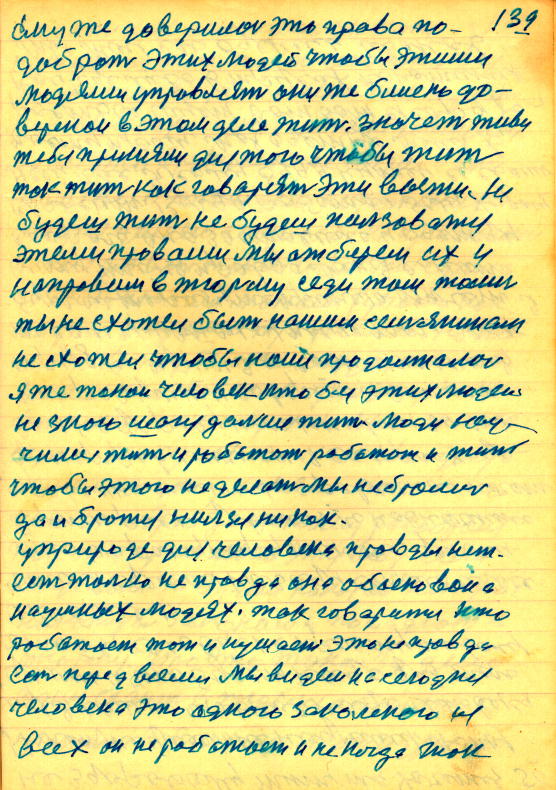 139
ему же доверилос это права по-
добрат этих людей чтобы этими
людями управлят они же блисько до-
вереном в этом деле жит. значет живи
тебя приняли для того чтобы жит
так жит как говарят эти власти. Ни
будеш жит не будеш ползоватся
этеми провами мы отберем их и
направем в тюрму седи там
ты не схотел быт нашим
не схотел чтобы наше продолжалос
я же такой человек что бы этих людей
не знаю шагу далше жит люди нау-
чилис жит и роботат работат и жит
чтобы этого не делат мы не бролис
да и братся нилзя никак.
у природе для человека правды нет.
ест толко не правда она обоснована
научных людях. так говарится кто
работает тот и кушает. это не правда
ест перед всеми мы видем на сегодня
человека это одного закаленого из
всех он не работает и не когда так